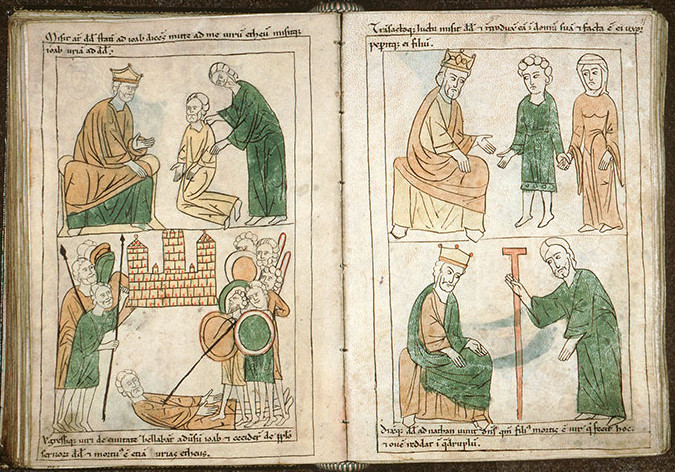 Misit aū dd̄ statī ad ioab dicēs mitte ad me uriā etheū misitq;
ioab uriā ad dd̄.
Egressiq; uiri de ciuitate bellabāt adūsū ioab ⁊ ceciderᷣ de pp̄lo
seruorᷣ dd̄ ⁊ mortu᷒ ē etiā urias etheus.
Trāsactoq; luctu misit dd̄ ⁊ ītrodux̄ eā ī domū suā ⁊ facta ē ei uxor
pepitq; ei filiū.
Dixq; dd̄ ad nathan uiuit dn̄s qm̄ fili᷒ mortis ē uir q̄ fecit hoc.
⁊ ouē reddat ī qᵈruplū.